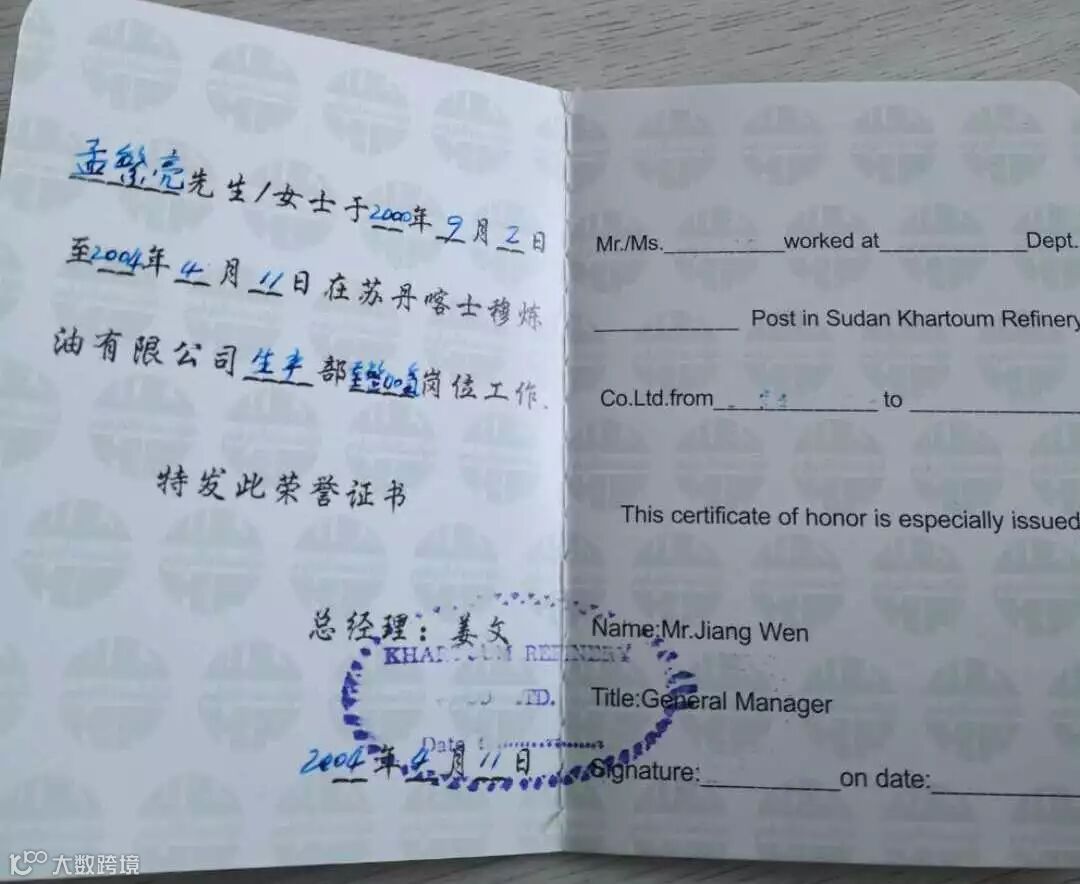 孟繁亮先生/女士于2000年9月2日
至2004年4月11日在苏丹喀土穆炼
油有限公司生产部岗位工作.
特发此荣誉证书
总经理：姜文
2004年4月11日
Mr./Ms.____________worked at______________Dept.
______________ Post in Sudan Khartoum Refinery
Co.Ltd.from________________to ________________
This certificate of honor is especially issued
Name:Mr.Jiang Wen
Title:General Manager
Signature:_____________on date:______________
KHARTOUM REFINERY
LTD.
Date
大数跨境